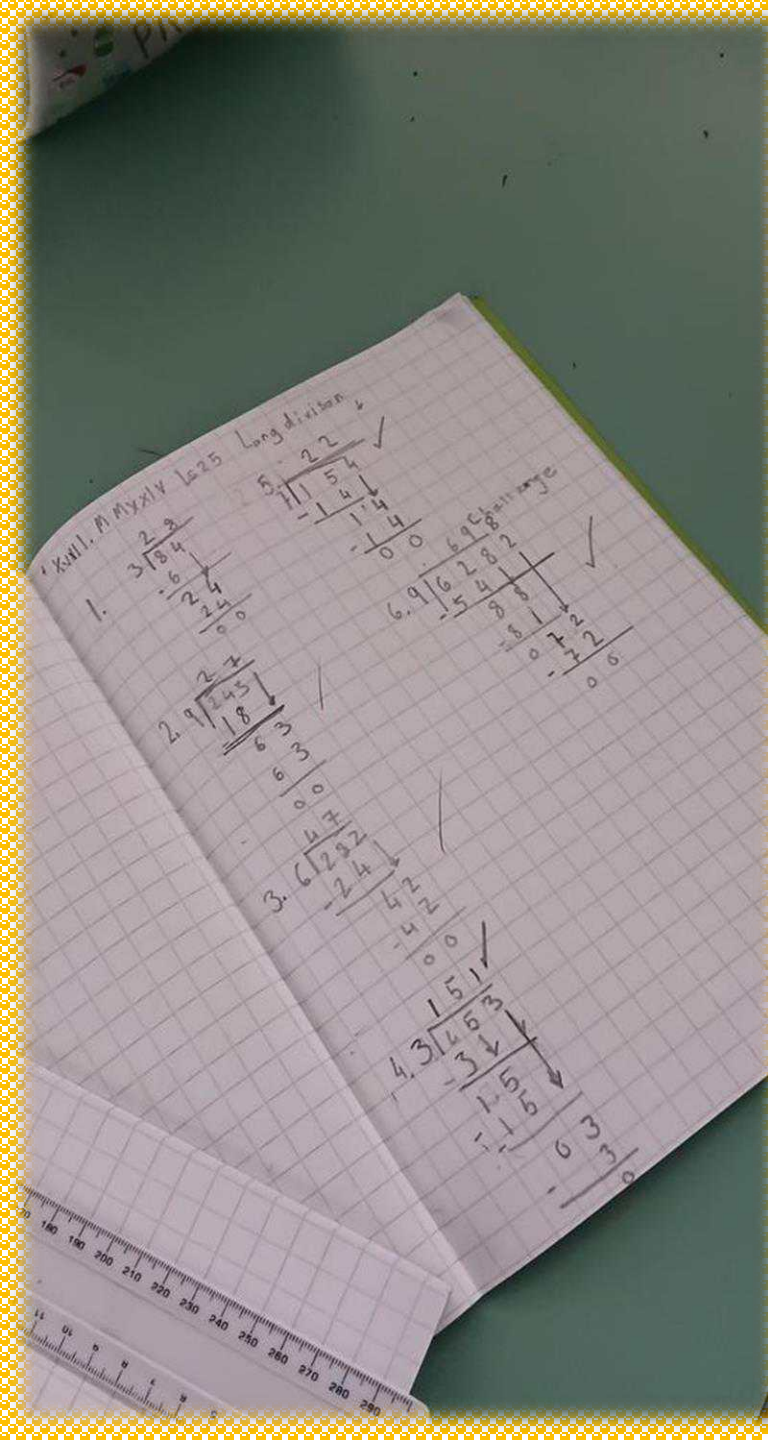 XVIII. M MMXXIV Ls25 Long divison
1.
2 8
3 8 4
- 6
2 4
2 4
0 0
2.
2 7
9 2 4 3
1 8
6 3
6 3
0 0
3.
4 7
6 2 8 2
- 2 4
4 2
- 4 2
0 0
4.
1 5 1
3 4 5 3
- 3
1 5
- 1 5
0 3
- 3
0
5.
2 2
7 1 5 4
- 1 4
1 4
- 1 4
0 0
challenge
6.
6 9 8
9 6 2 8 2
- 5 4
8 8
- 8 1
0 7 2
- 7 2
0 0
180 190 200 210 220 230 240 250 260 270 280 290
11 10 9 8 7 6 5